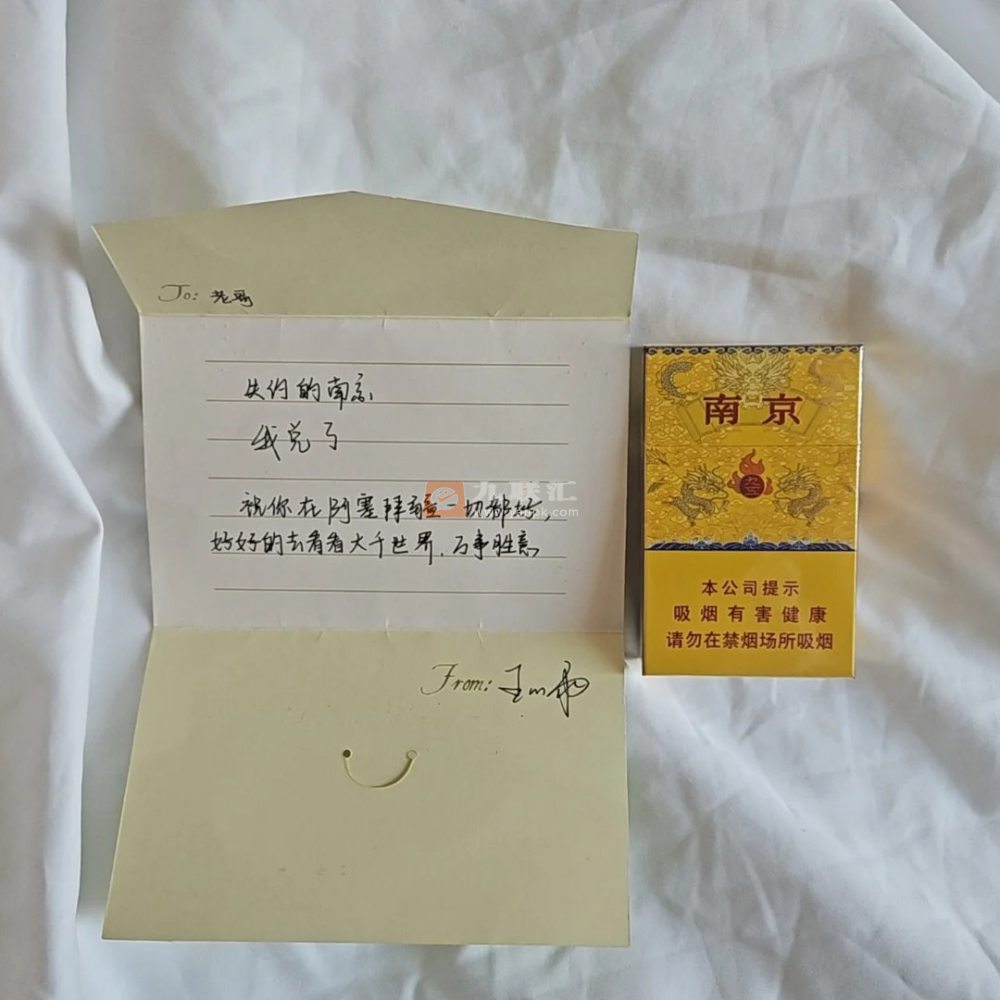 To: 老哥
失约的南京
我兑了
祝你在阿塞拜疆一切都好,
好好的去看看大千世界,万事胜意
From: 王
九联汇
南京
本公司提示
吸烟有害健康
请勿在禁烟场所吸烟